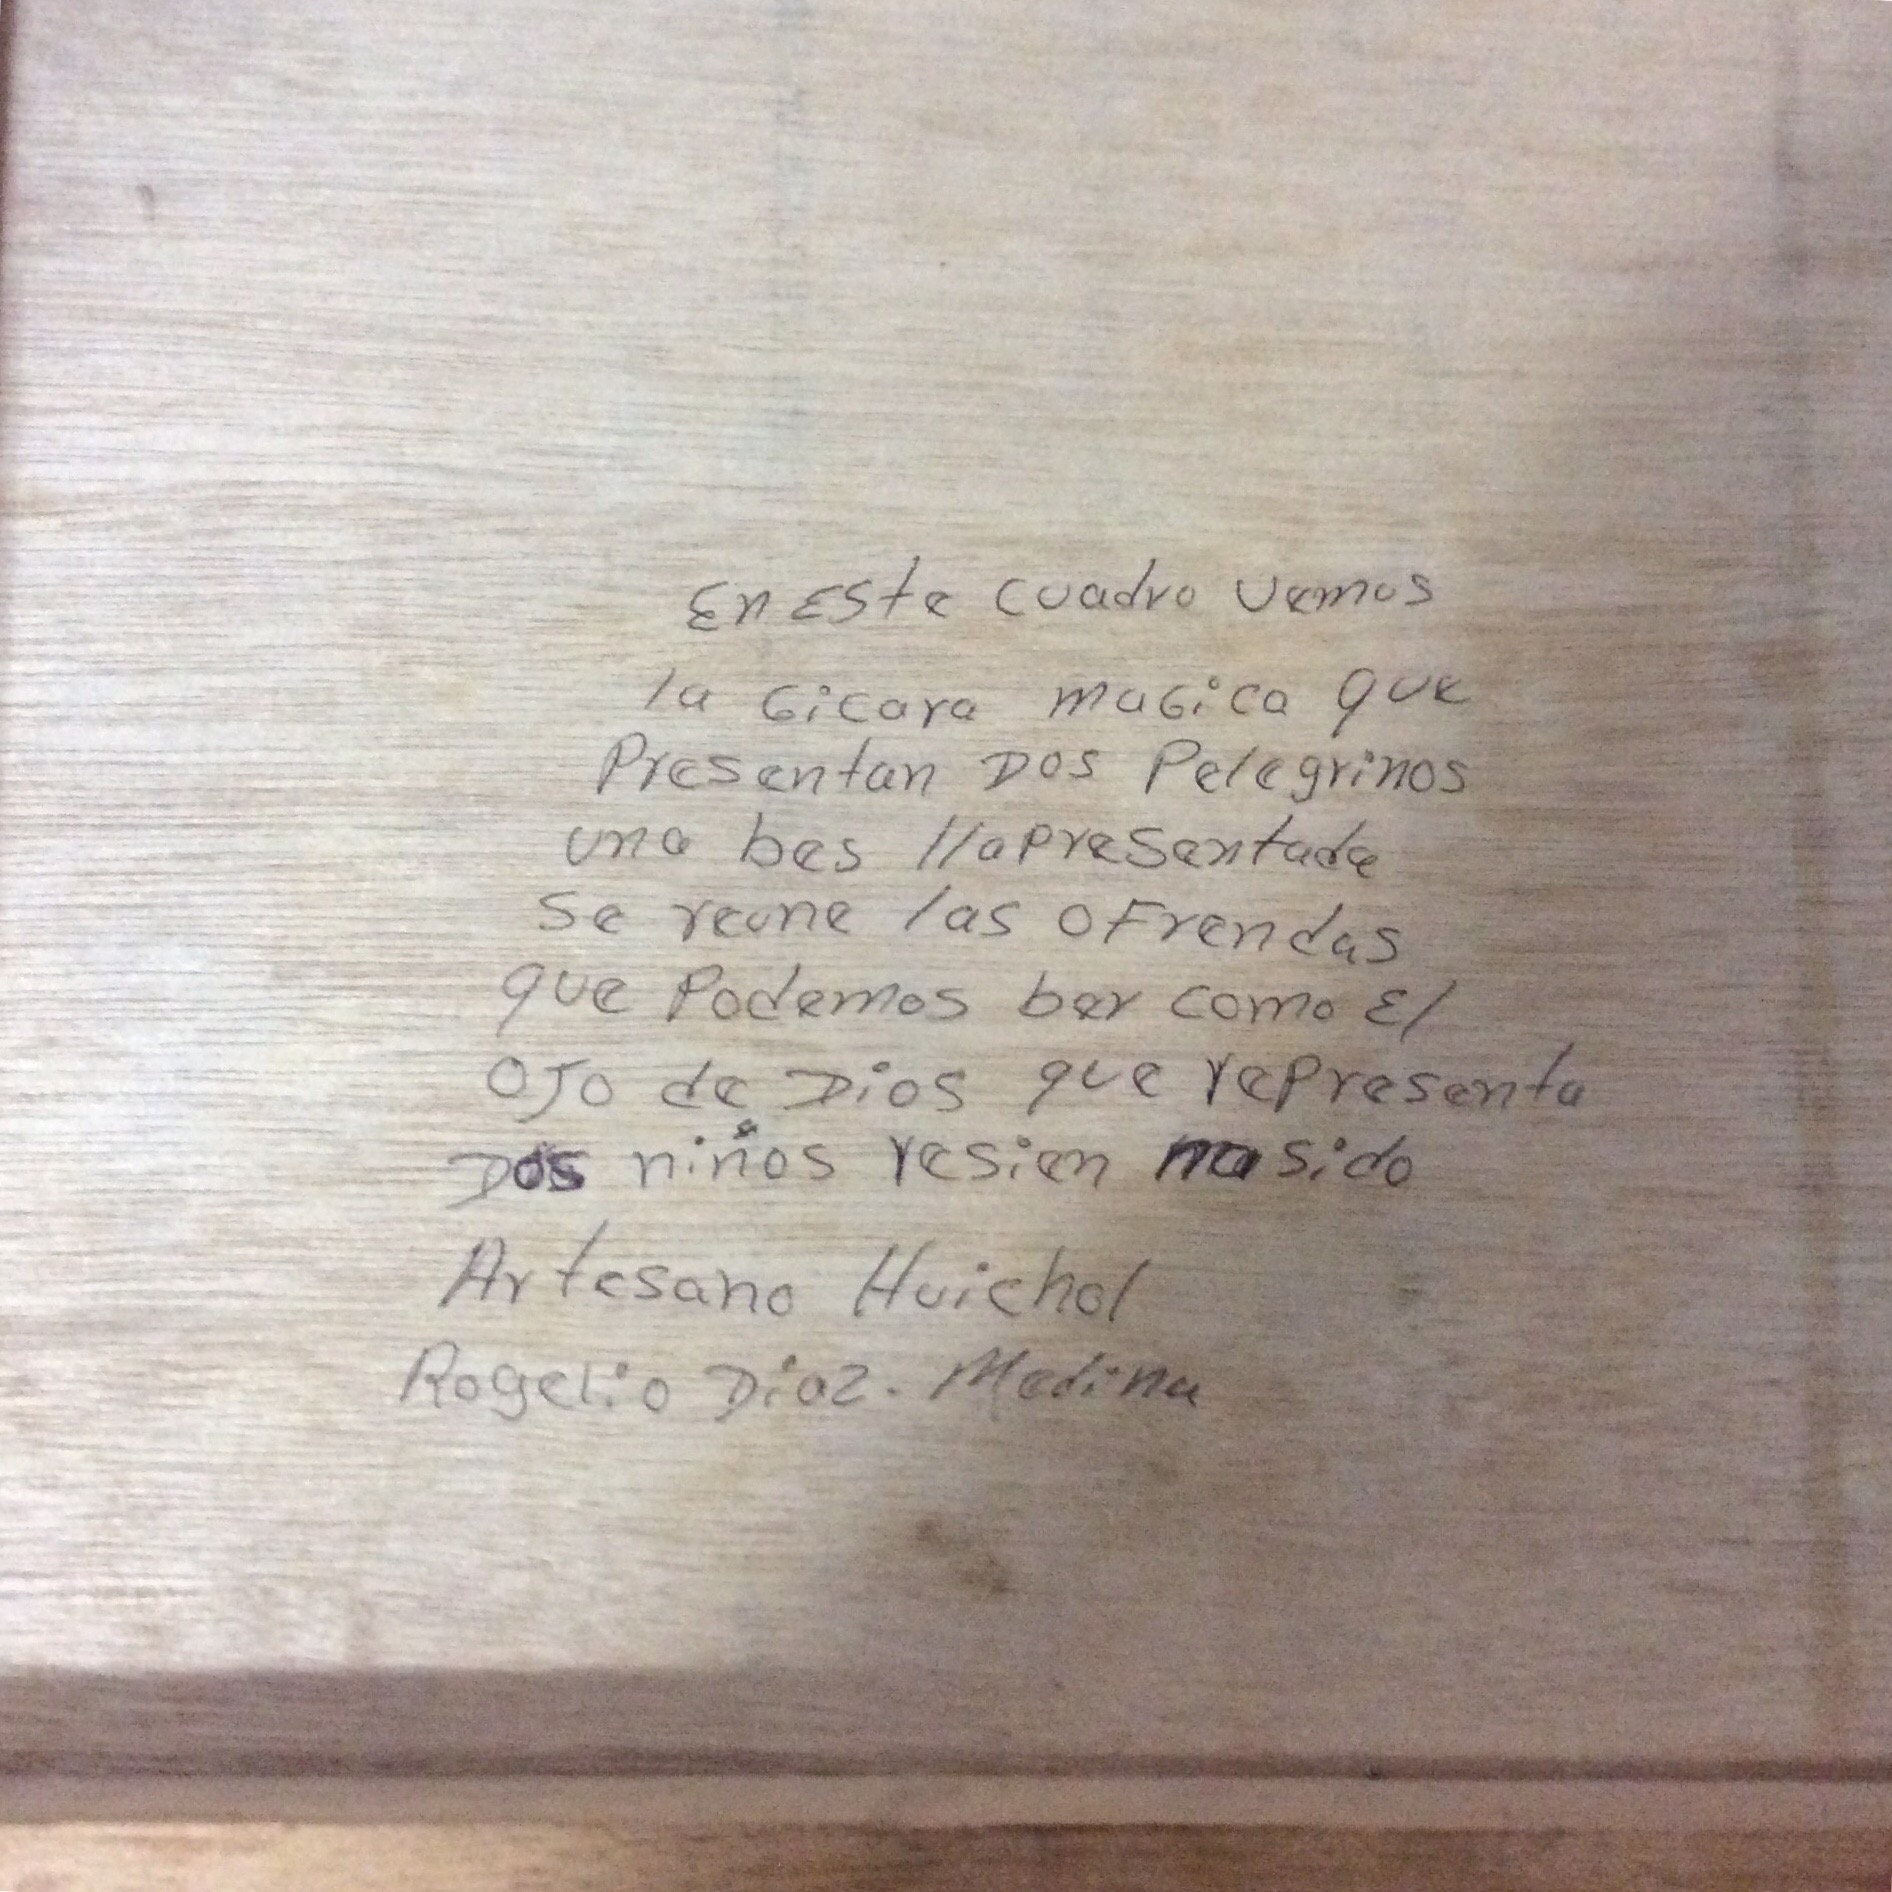 En Este cuadro vemos
la Gicara maGica que
Presentan Dos Pelegrinos
una bes llapresentada
Se reune las oFrendas
que Podemos ber como El
OJO de Dios que representa
Dos niños resien nasido
Artesano Huichol
Rogelio Diaz. Medina